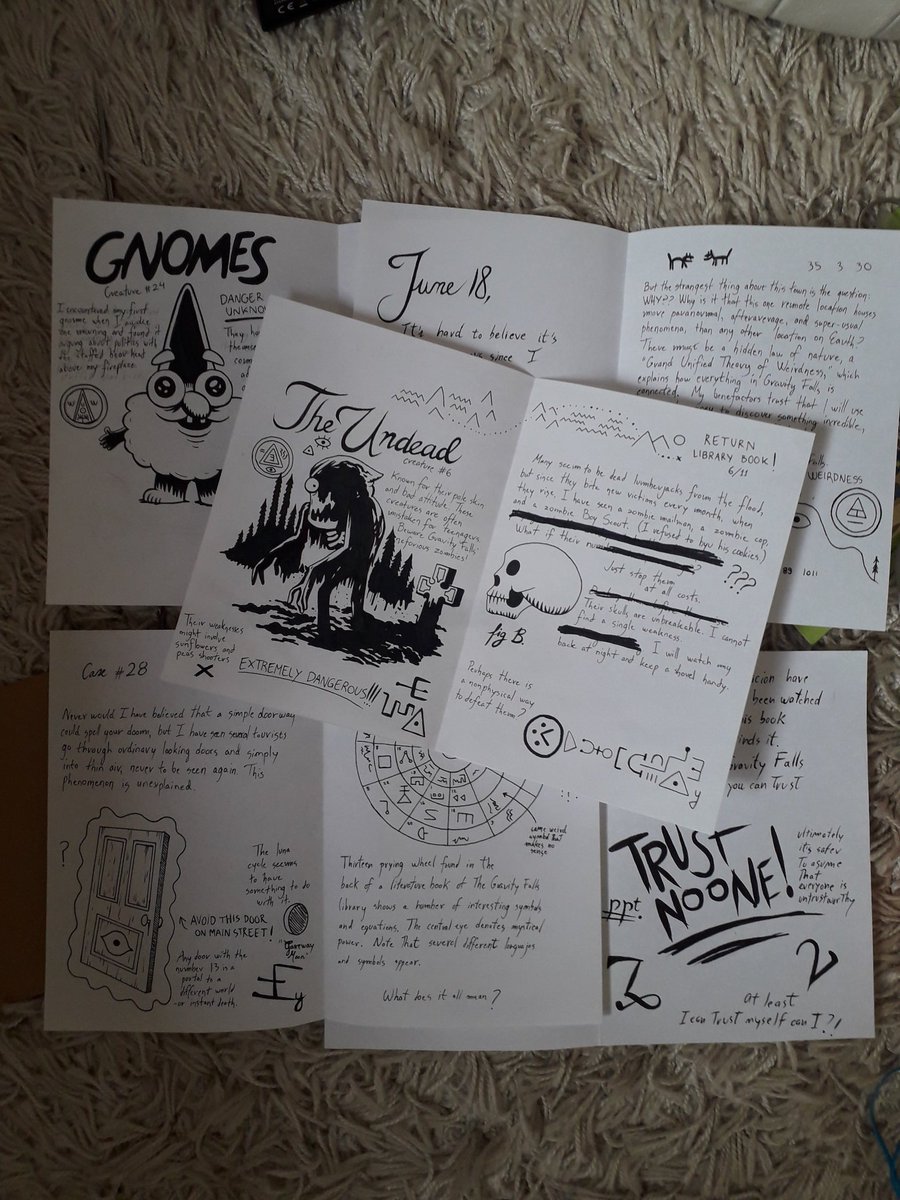 CE
GNOMES
Creature #24
I encountered my first
gnome when I awoke
one morning and found it
arguing about politics with
the stuffed bear head
above my fireplace.
DANGER
UNKNOW
They ha
June 18,
It's hard to believe it's
since I
35 3 30
But the strangest thing about this town is the question:
WHY?? Why is it that this one remote location houses
more paranormal, afteraverage, and super-usual
phenomena, than any other location on Earth?
There must be a hidden law of nature, a
"Grand Unified Theory of Weirdness," which
explains how everything in Gravity Falls is
connected. My benefactors trust that I will use
to discover something incredible,
Falls.
WEIRDNESS
89 1011
The Undead
creature #6
Known for their pale skin
and bad attitude. These
creatures are often
mistaken for teenagers.
Beware Gravity Falls'
nefarious zombies!
Their weaknesses
might involve
sunflowers and
peas shooters
EXTREMELY DANGEROUS!!!
RETURN
LIBRARY BOOK!
6/11
Many seem to be dead lumberjacks from the flood,
but since they bite new victims every month, when
they rise, I have seen a zombie mailman, a zombie cop,
and a zombie Boy Scout. (I refused to buy his cookies.)
What if their
???
Just stop them
at all costs.
Their skulls are unbreakable. I cannot
find a single weakness.
I will watch my
back at night and keep a shovel handy.
fig B.
Perhaps there is
a nonphysical way
to defeat them?
Case #28
Never would I have believed that a simple doorway
could spell your doom, but I have seen several tourises
go through ordinary looking doors and simply
into thin air, never to be seen again. This
Phenomenon is unexplained.
?
The luna
cycle seems
to have
something to do
with it.
AVOID THIS DOOR
ON MAIN STREET!
Any door with the
number 13 is a
portal to a
different world
-or instant death.
some weird
symbol that
makes no
sense
Thirteen prying wheel found in the
back of a literature book of The Gravity Falk
library shows a number of interesting symbols
and equations. The central eye denotes mystical
power. Note That several different languajes
and symbols appear.
What does it all mean?
icion have
been watched
is book
inds it.
ravity Falls
you can trust
TRUST
NO ONE!
ultimately
it's safer
To asume
That
everyone is
untrustworthy
ppt.
2
at least
I can Trust myself can I?!